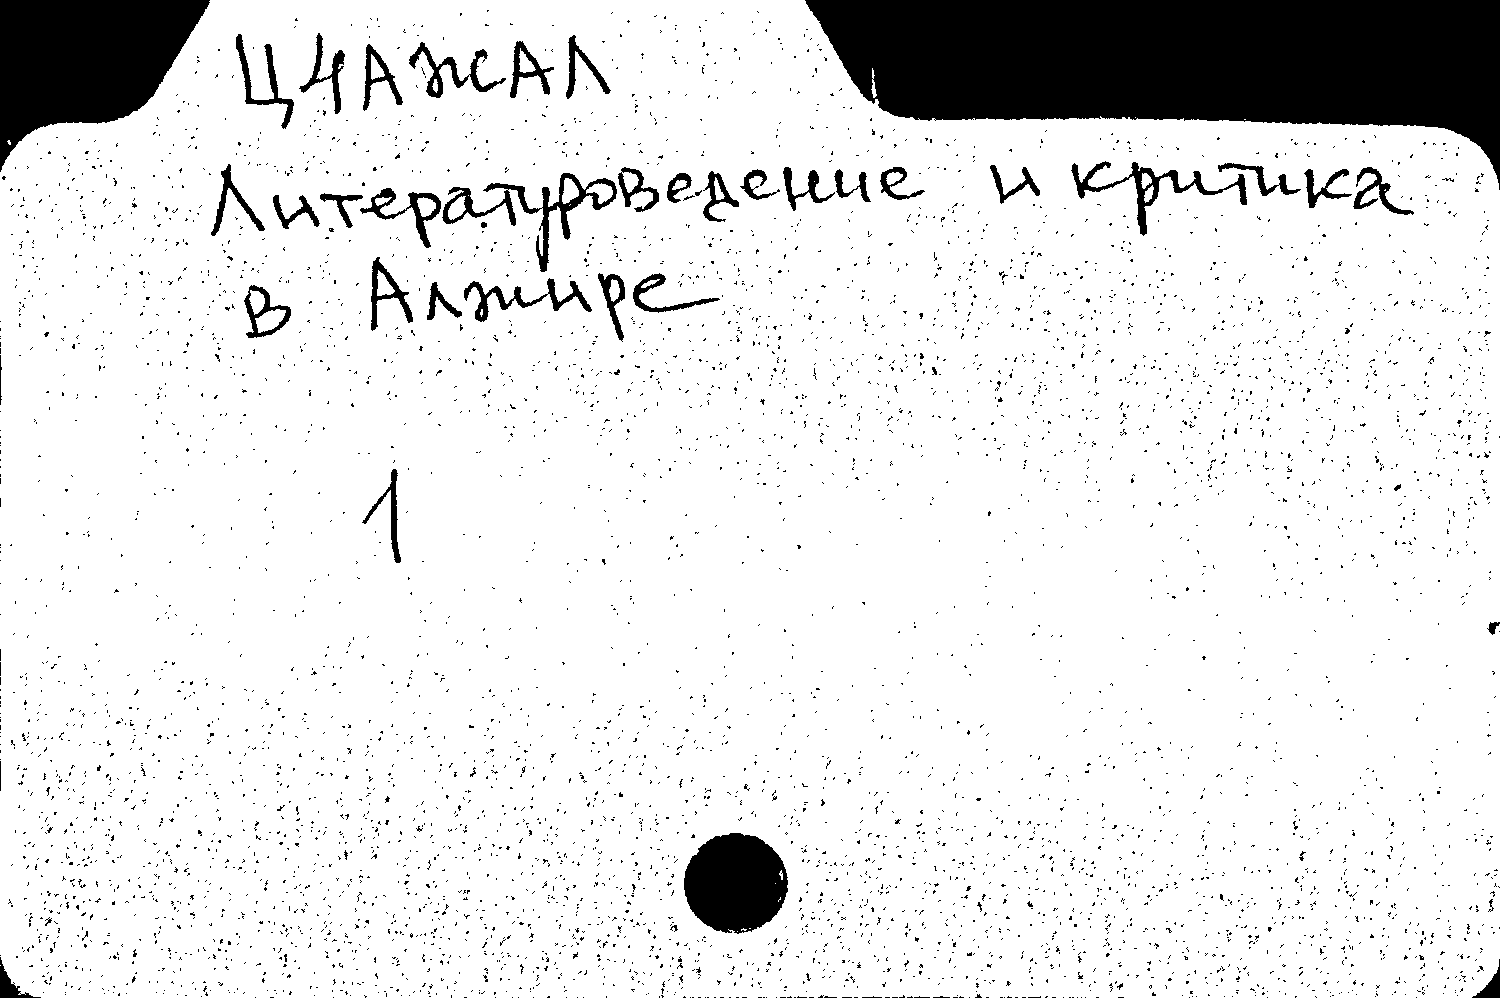 Ц4АЖАЛ
Литературоведение и критика
в Алжире
1